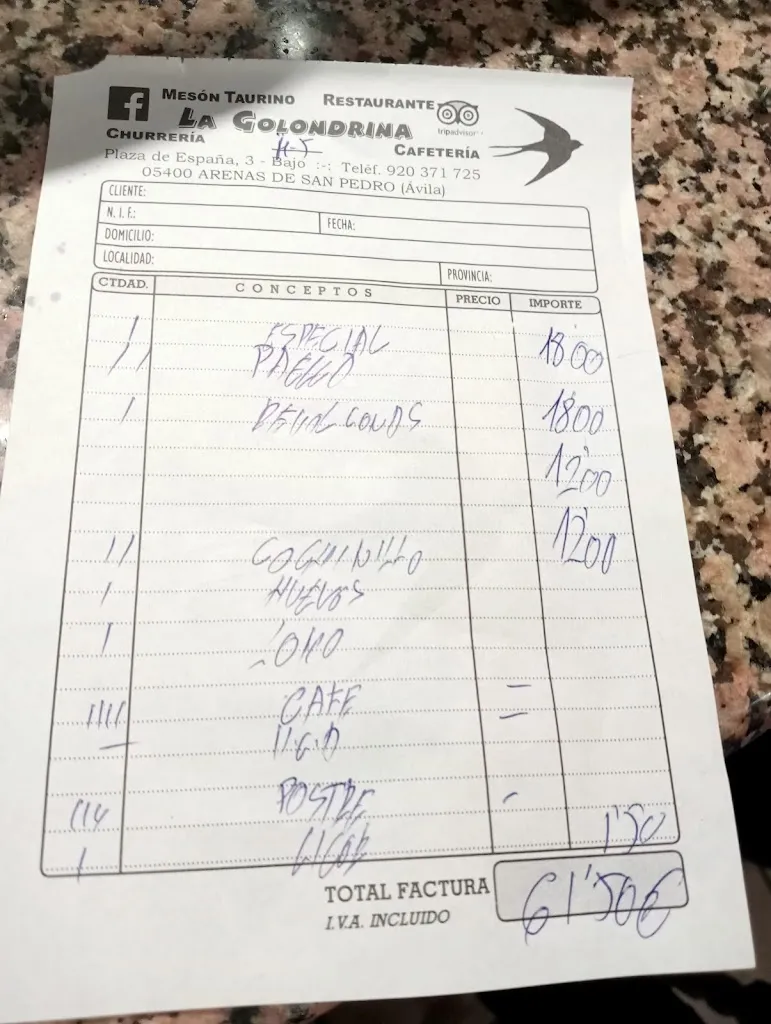 MESÓN TAURINO RESTAURANTE
LA GOLONDRINA
tripadvisor
CHURRERÍA CAFETERÍA
Plaza de España, 3 - Bajo :-: Teléf. 920 371 725
05400 ARENAS DE SAN PEDRO (Ávila)
CLIENTE:
N. I. F.: FECHA:
DOMICILIO:
LOCALIDAD: PROVINCIA:
CTDAD. CONCEPTOS PRECIO IMPORTE
ESPECIAL 18'00
PAELLA
18'00
12'00
12'00
HUEVOS
CAFE
POSTRE
LICOR 1'50
TOTAL FACTURA 61'50€
I.V.A. INCLUIDO